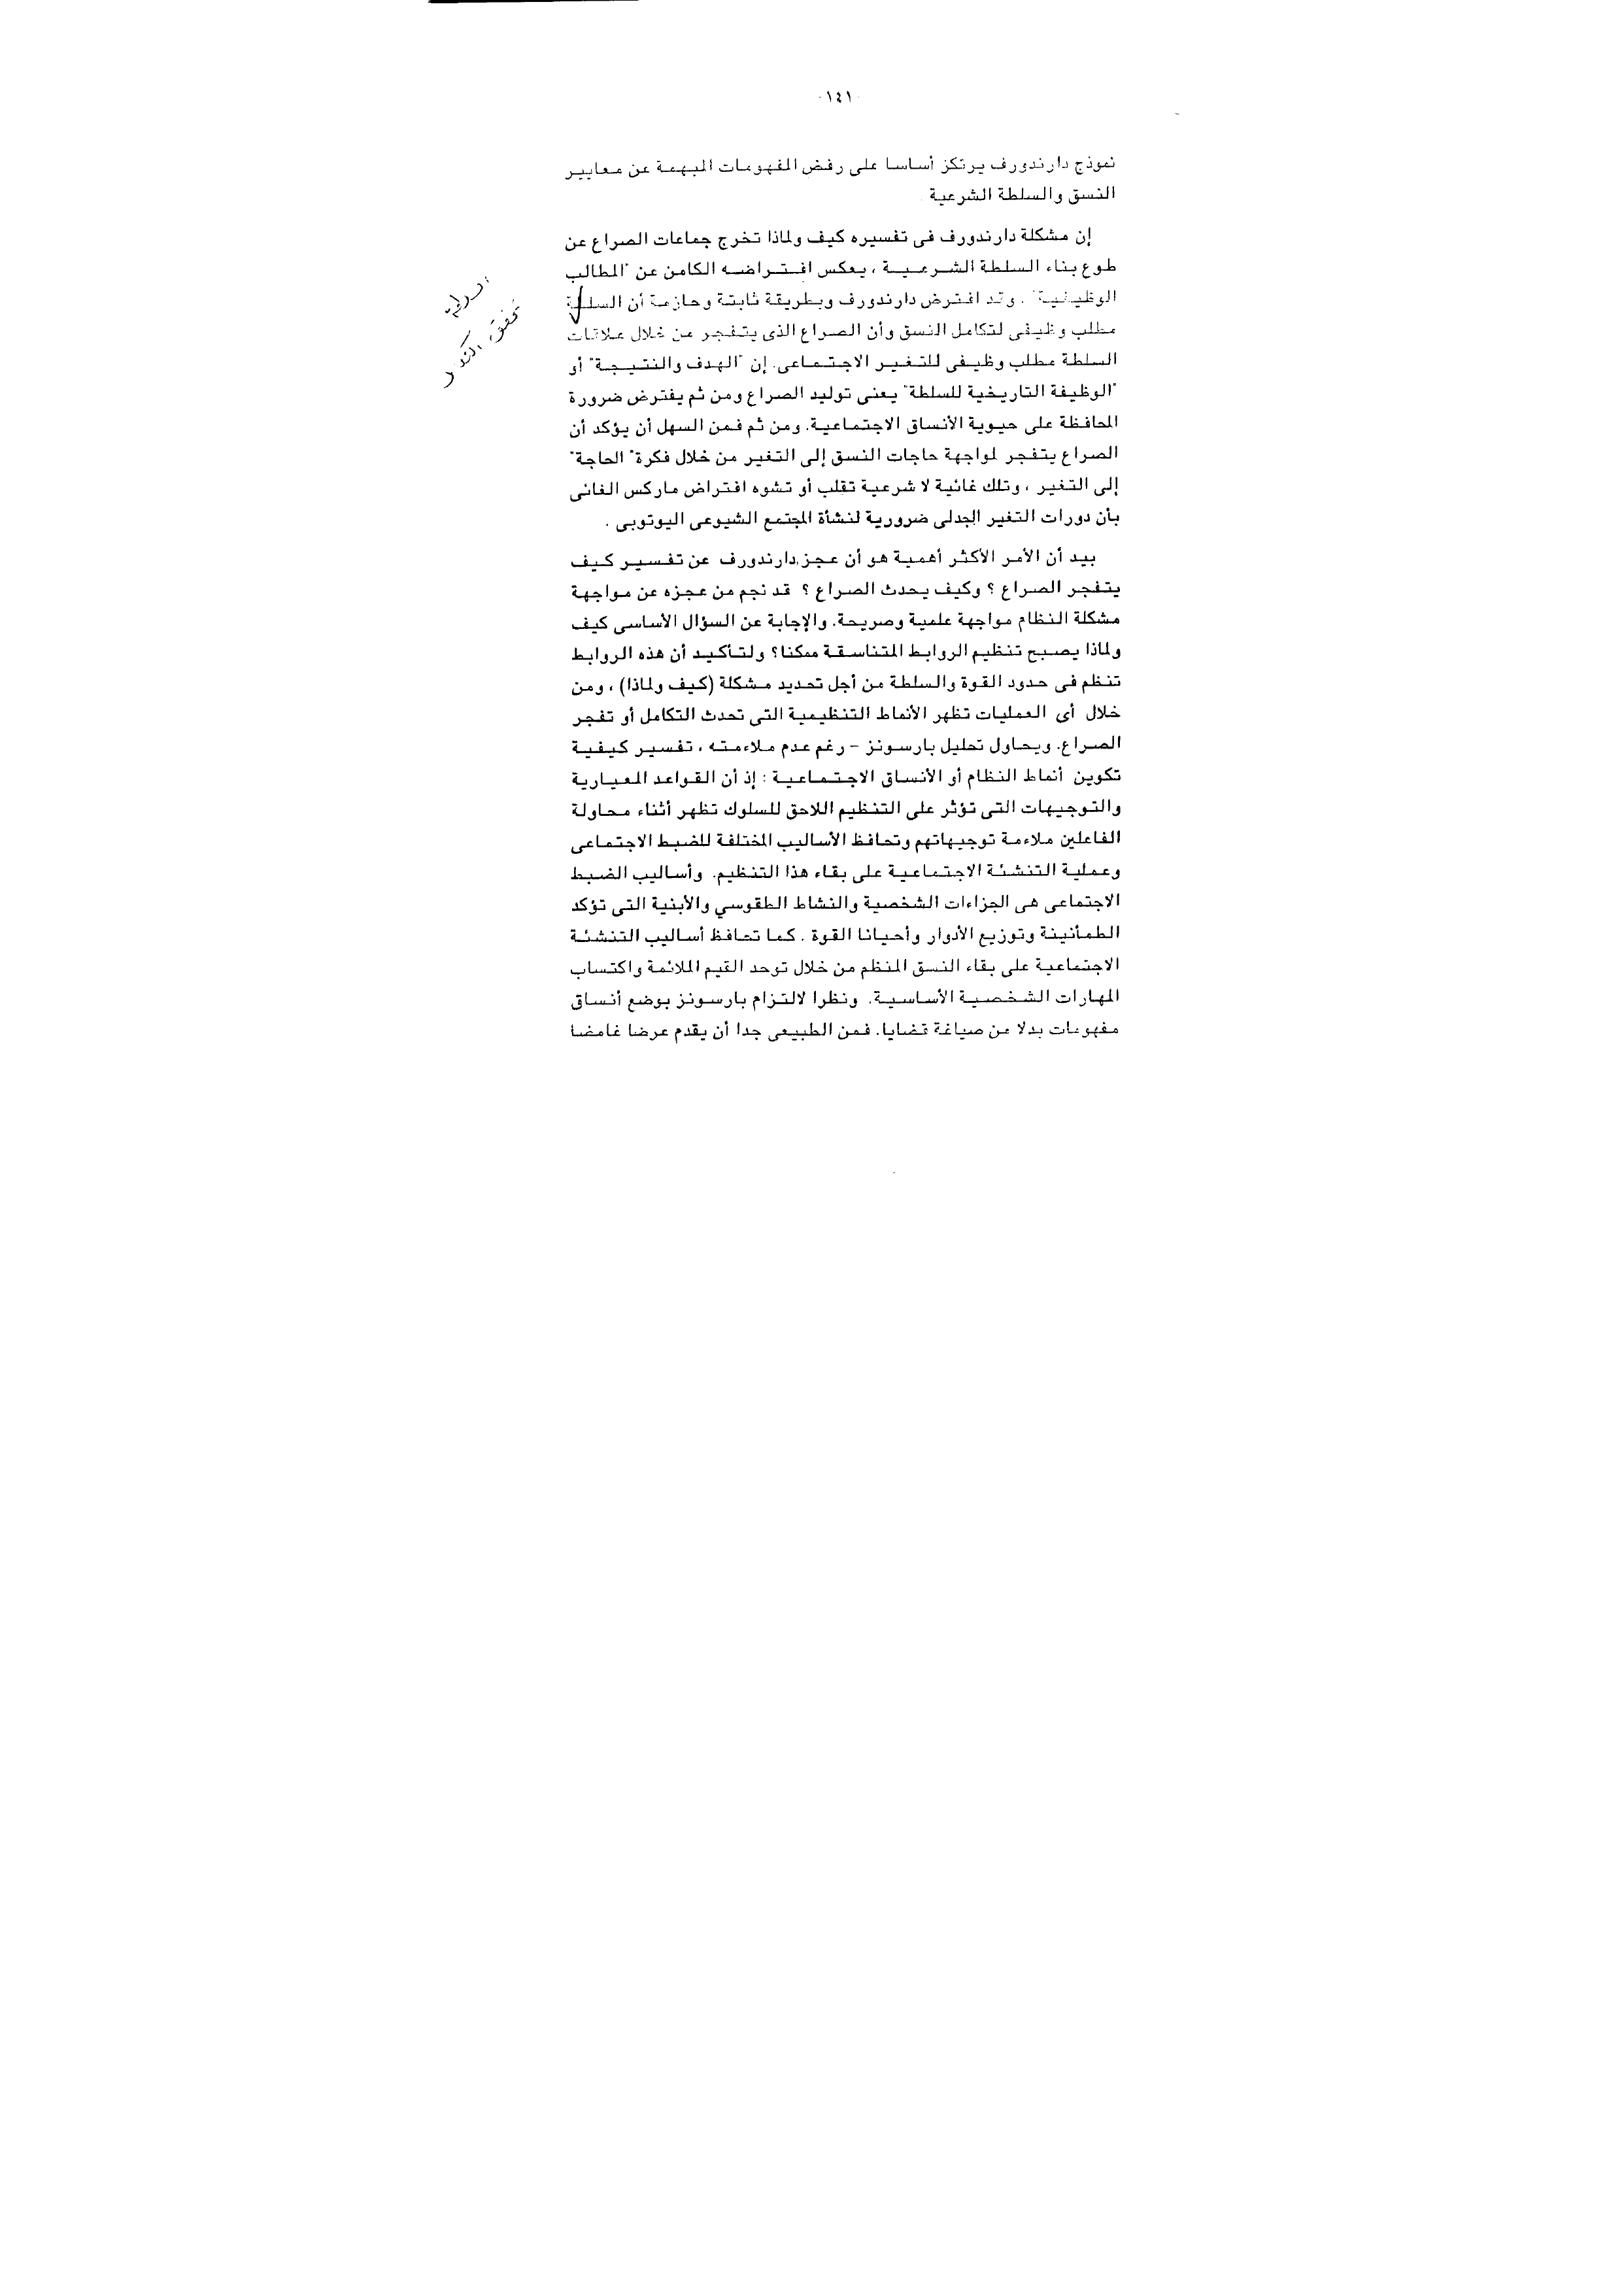 ١٤١
نموذج دارندورف يرتكز أساسا على رفض المفهومات المبهمة عن معايير
النسق والسلطة الشرعية
إن مشكلة دارندورف فى تفسيره كيف ولماذا تخرج جماعات الصراع عن
طوع بناء السلطة الشرعية ، يعكس افتراضه الكامن عن "المطالب
الوظيفية" . وقد افترض دارندورف وبطريقة ثابتة وحازمة أن السلطة
مطلب وظيفى لتكامل النسق وأن الصراع الذى يتفجر من خلال علاقات
السلطة مطلب وظيفى للتغير الاجتماعى. إن "الهدف والنتيجة" أو
"الوظيفة التاريخية للسلطة" يعنى توليد الصراع ومن ثم يفترض ضرورة
المحافظة على حيوية الأنساق الاجتماعية. ومن ثم فمن السهل أن يؤكد أن
الصراع يتفجر لمواجهة حاجات النسق إلى التغير من خلال فكرة" الحاجة"
إلى التغير ، وتلك غائية لا شرعية تقلب أو تشوه افتراض ماركس الغائى
بأن دورات التغير الجدلى ضرورية لنشأة المجتمع الشيوعى اليوتوبى .
بيد أن الأمر الأكثر أهمية هو أن عجز دارندورف عن تفسير كيف
يتفجر الصراع ؟ وكيف يحدث الصراع ؟ قد نجم من عجزه عن مواجهة
مشكلة النظام مواجهة علمية وصريحة. والإجابة عن السؤال الأساسى كيف
ولماذا يصبح تنظيم الروابط المتناسقة ممكنا؟ ولتأكيد أن هذه الروابط
تنظم فى حدود القوة والسلطة من أجل تحديد مشكلة (كيف ولماذا) ، ومن
خلال أى العمليات تظهر الأنماط التنظيمية التى تحدث التكامل أو تفجر
الصراع. ويحاول تحليل بارسونز – رغم عدم ملاءمته ، تفسير كيفية
تكوين أنماط النظام أو الأنساق الاجتماعية : إذ أن القواعد المعيارية
والتوجيهات التى تؤثر على التنظيم اللاحق للسلوك تظهر أثناء محاولة
الفاعلين ملاءمة توجيهاتهم وتحافظ الأساليب المختلفة للضبط الاجتماعى
وعملية التنشئة الاجتماعية على بقاء هذا التنظيم. وأساليب الضبط
الاجتماعى هى الجزاءات الشخصية والنشاط الطقوسي والأبنية التى تؤكد
الطمأنينة وتوزيع الأدوار وأحيانا القوة . كما تحافظ أساليب التنشئة
الاجتماعية على بقاء النسق المنظم من خلال توحد القيم الملائمة واكتساب
المهارات الشخصية الأساسية. ونظرا لالتزام بارسونز بوضع أنساق
مفهومات بدلا من صياغة قضايا. فمن الطبيعى جدا أن يقدم عرضا غامضا